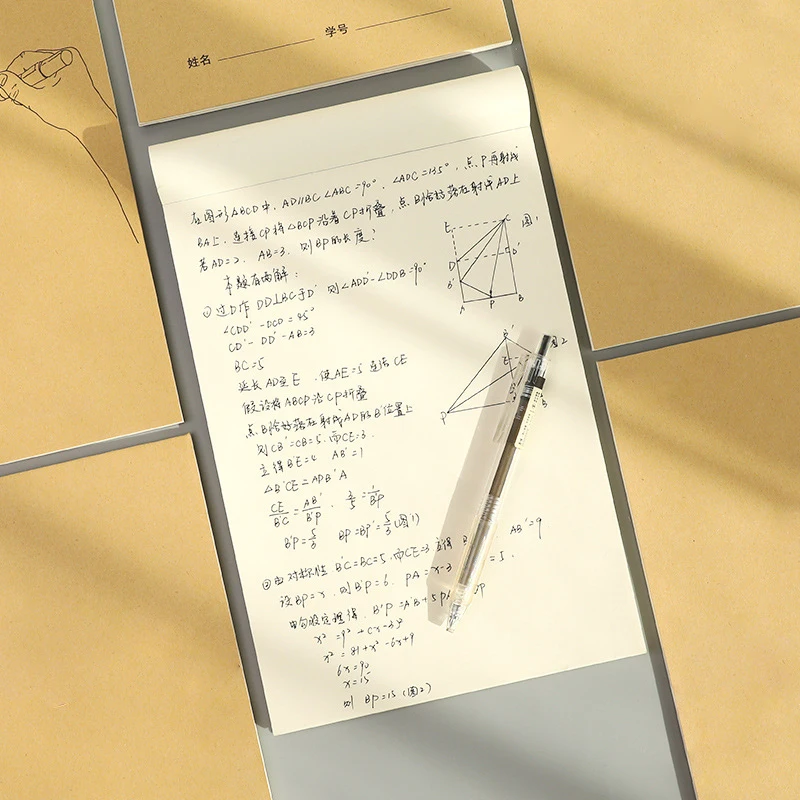 姓名 学号
在图形ABCD中,AD//BC ∠ABC=90°,∠ADC=135°,点P再射线
BA上,连接CP将△BCP沿着CP折叠,点B恰好落在射线AD上
若AD=2,AB=3,则BP的长度?
本题有两解:
① 过D作 DD⊥BC于D' 则∠ADD'-∠DDB=90°
∠CDD'-DCD=45°
CD'-DD'-AB=3
BC=5
延长AD至E,使AE=5 连结CE
假设将ABCP沿CP折叠
点B恰好落在射线AD的B'位置上
则CB'=CB=5,而CE=3.
立得B'E=4 AB'=1
△B'CE=APB'A
CE/B'C=AB'/B'P, 3/5=1/B'P
B'P=5/3 BP=BP'=5/3(图1)
②由对称性 B'C=BC=5,而CE=3,立得 AB'=9
设BP=x,则B'P=6, PA=x-3 =5.
由勾股定理得,B'P=A'B+5PA
x²=9²+(x-3)²
x²=81+x²-6x+9
6x=90
x=15
则 BP=15(图2)
E C 图1
D D'
B'
A P B
B' 图2
E
P